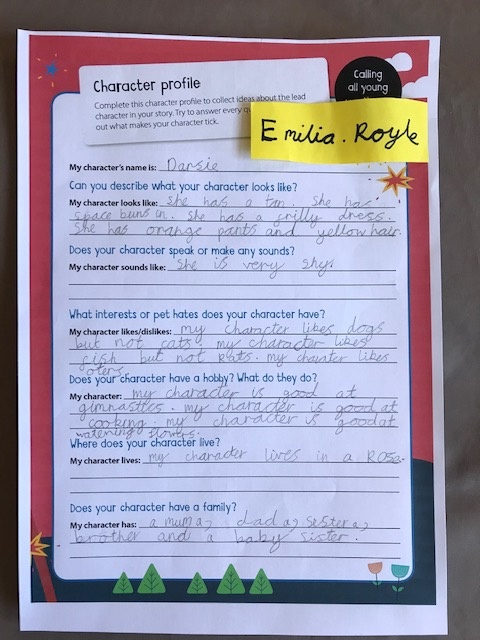 Character profile
Calling
all young
Complete this character profile to collect ideas about the lead
character in your story. Try to answer every
out what makes your character tick.
Emilia. Royle
My character's name is: Darsie
Can you describe what your character looks like?
My character looks like: she has a tan. She has
space buns in. She has a frilly dress.
She has orange pants and yellow hair.
Does your character speak or make any sounds?
My character sounds like: She is very shy.
What interests or pet hates does your character have?
My character likes/dislikes: my character likes dogs
but not cats. my character likes
fish but not Rats. my charater likes
oters.
Does your character have a hobby? What do they do?
My character: my character is good at
gimnastics. my character is good at
cooking. my character is good at
watening flowers.
Where does your character live?
My character lives: my character lives in a Rose.
Does your character have a family?
My character has: a mum a, dad a, sister a,
brother and a baby sister.